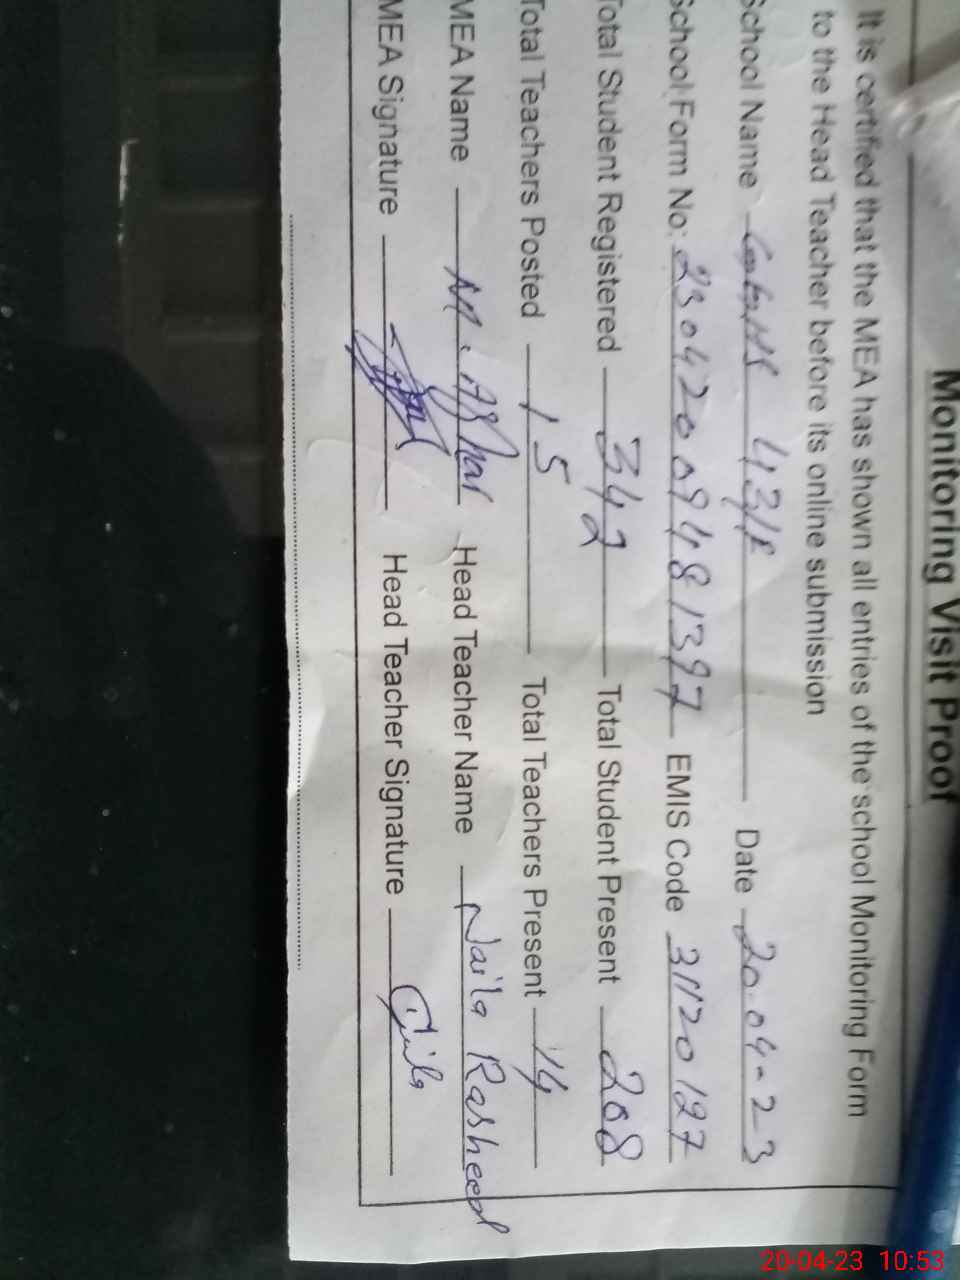 Monitoring Visit Proof
It is certified that the MEA has shown all entries of the school Monitoring Form
to the Head Teacher before its online submission
School Name 43/R Date 20-04-23
School Form No: 230420094481397 EMIS Code 31120127
Total Student Registered 342 Total Student Present 208
Total Teachers Posted 15 Total Teachers Present 14
MEA Name M. Azhar Head Teacher Name Naila Rasheed
MEA Signature Head Teacher Signature Naila
20-04-23 10:53